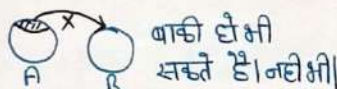 X
A
B
बाकी हो भी
सकते है। नही भी।